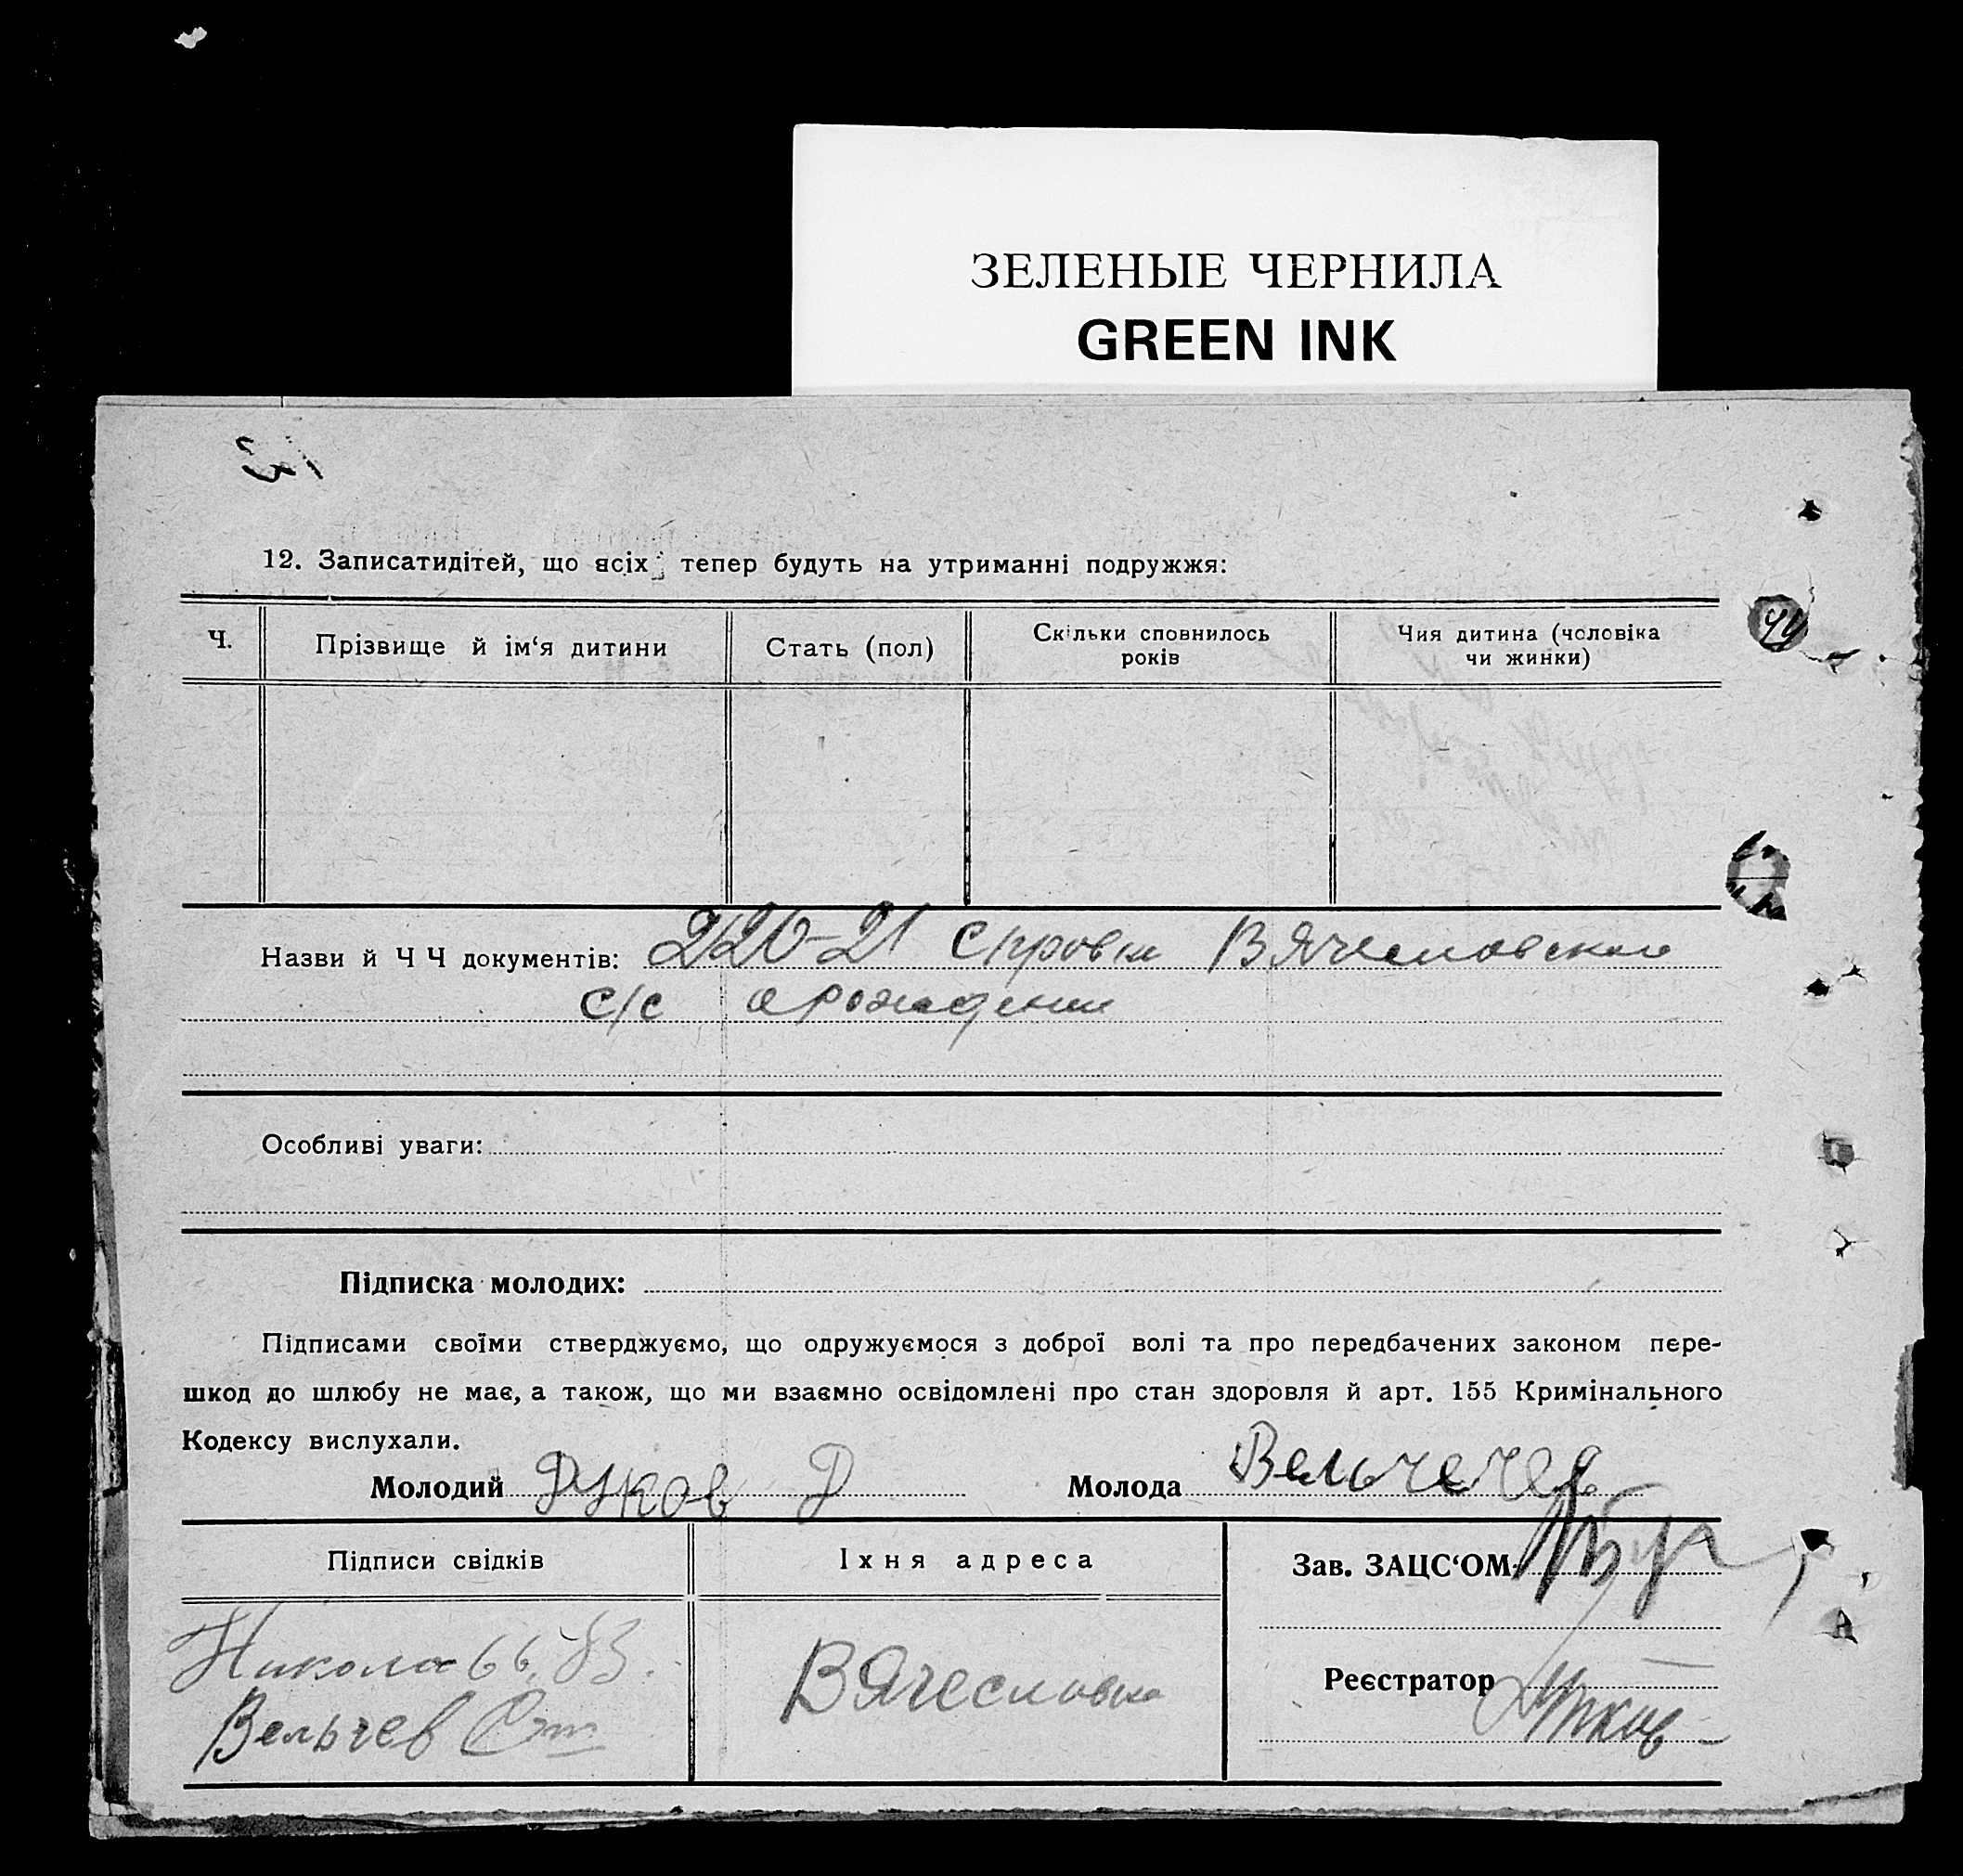 ЗЕЛЕНЫЕ ЧЕРНИЛА
GREEN INK
12. Записатидітей, що всіх тепер будуть на утриманні подружжя:
Ч.
Прізвище й ім‘я дитини
Стать (пол)
Скільки сповнилось
років
Чия дитина (чоловіка
чи жинки)
Назви й Ч Ч документів: 220-21 Справки Вячесловского
с/с о рождении
Особливі уваги:
Підписка молодих:
Підписами своїми стверджуємо, що одружуємося з доброї волі та про передбачених законом пере-
шкод до шлюбу не має, а також, що ми взаємно освідомлені про стан здоровля й арт. 155 Кримінального
Кодексу вислухали.
Молодий Дуков Д
Молода Вельчечев
Підписи свідків
Їхня адреса
Зав. ЗАЦС‘ОМ
Вельчев Ст
Вячесловка
Реєстратор